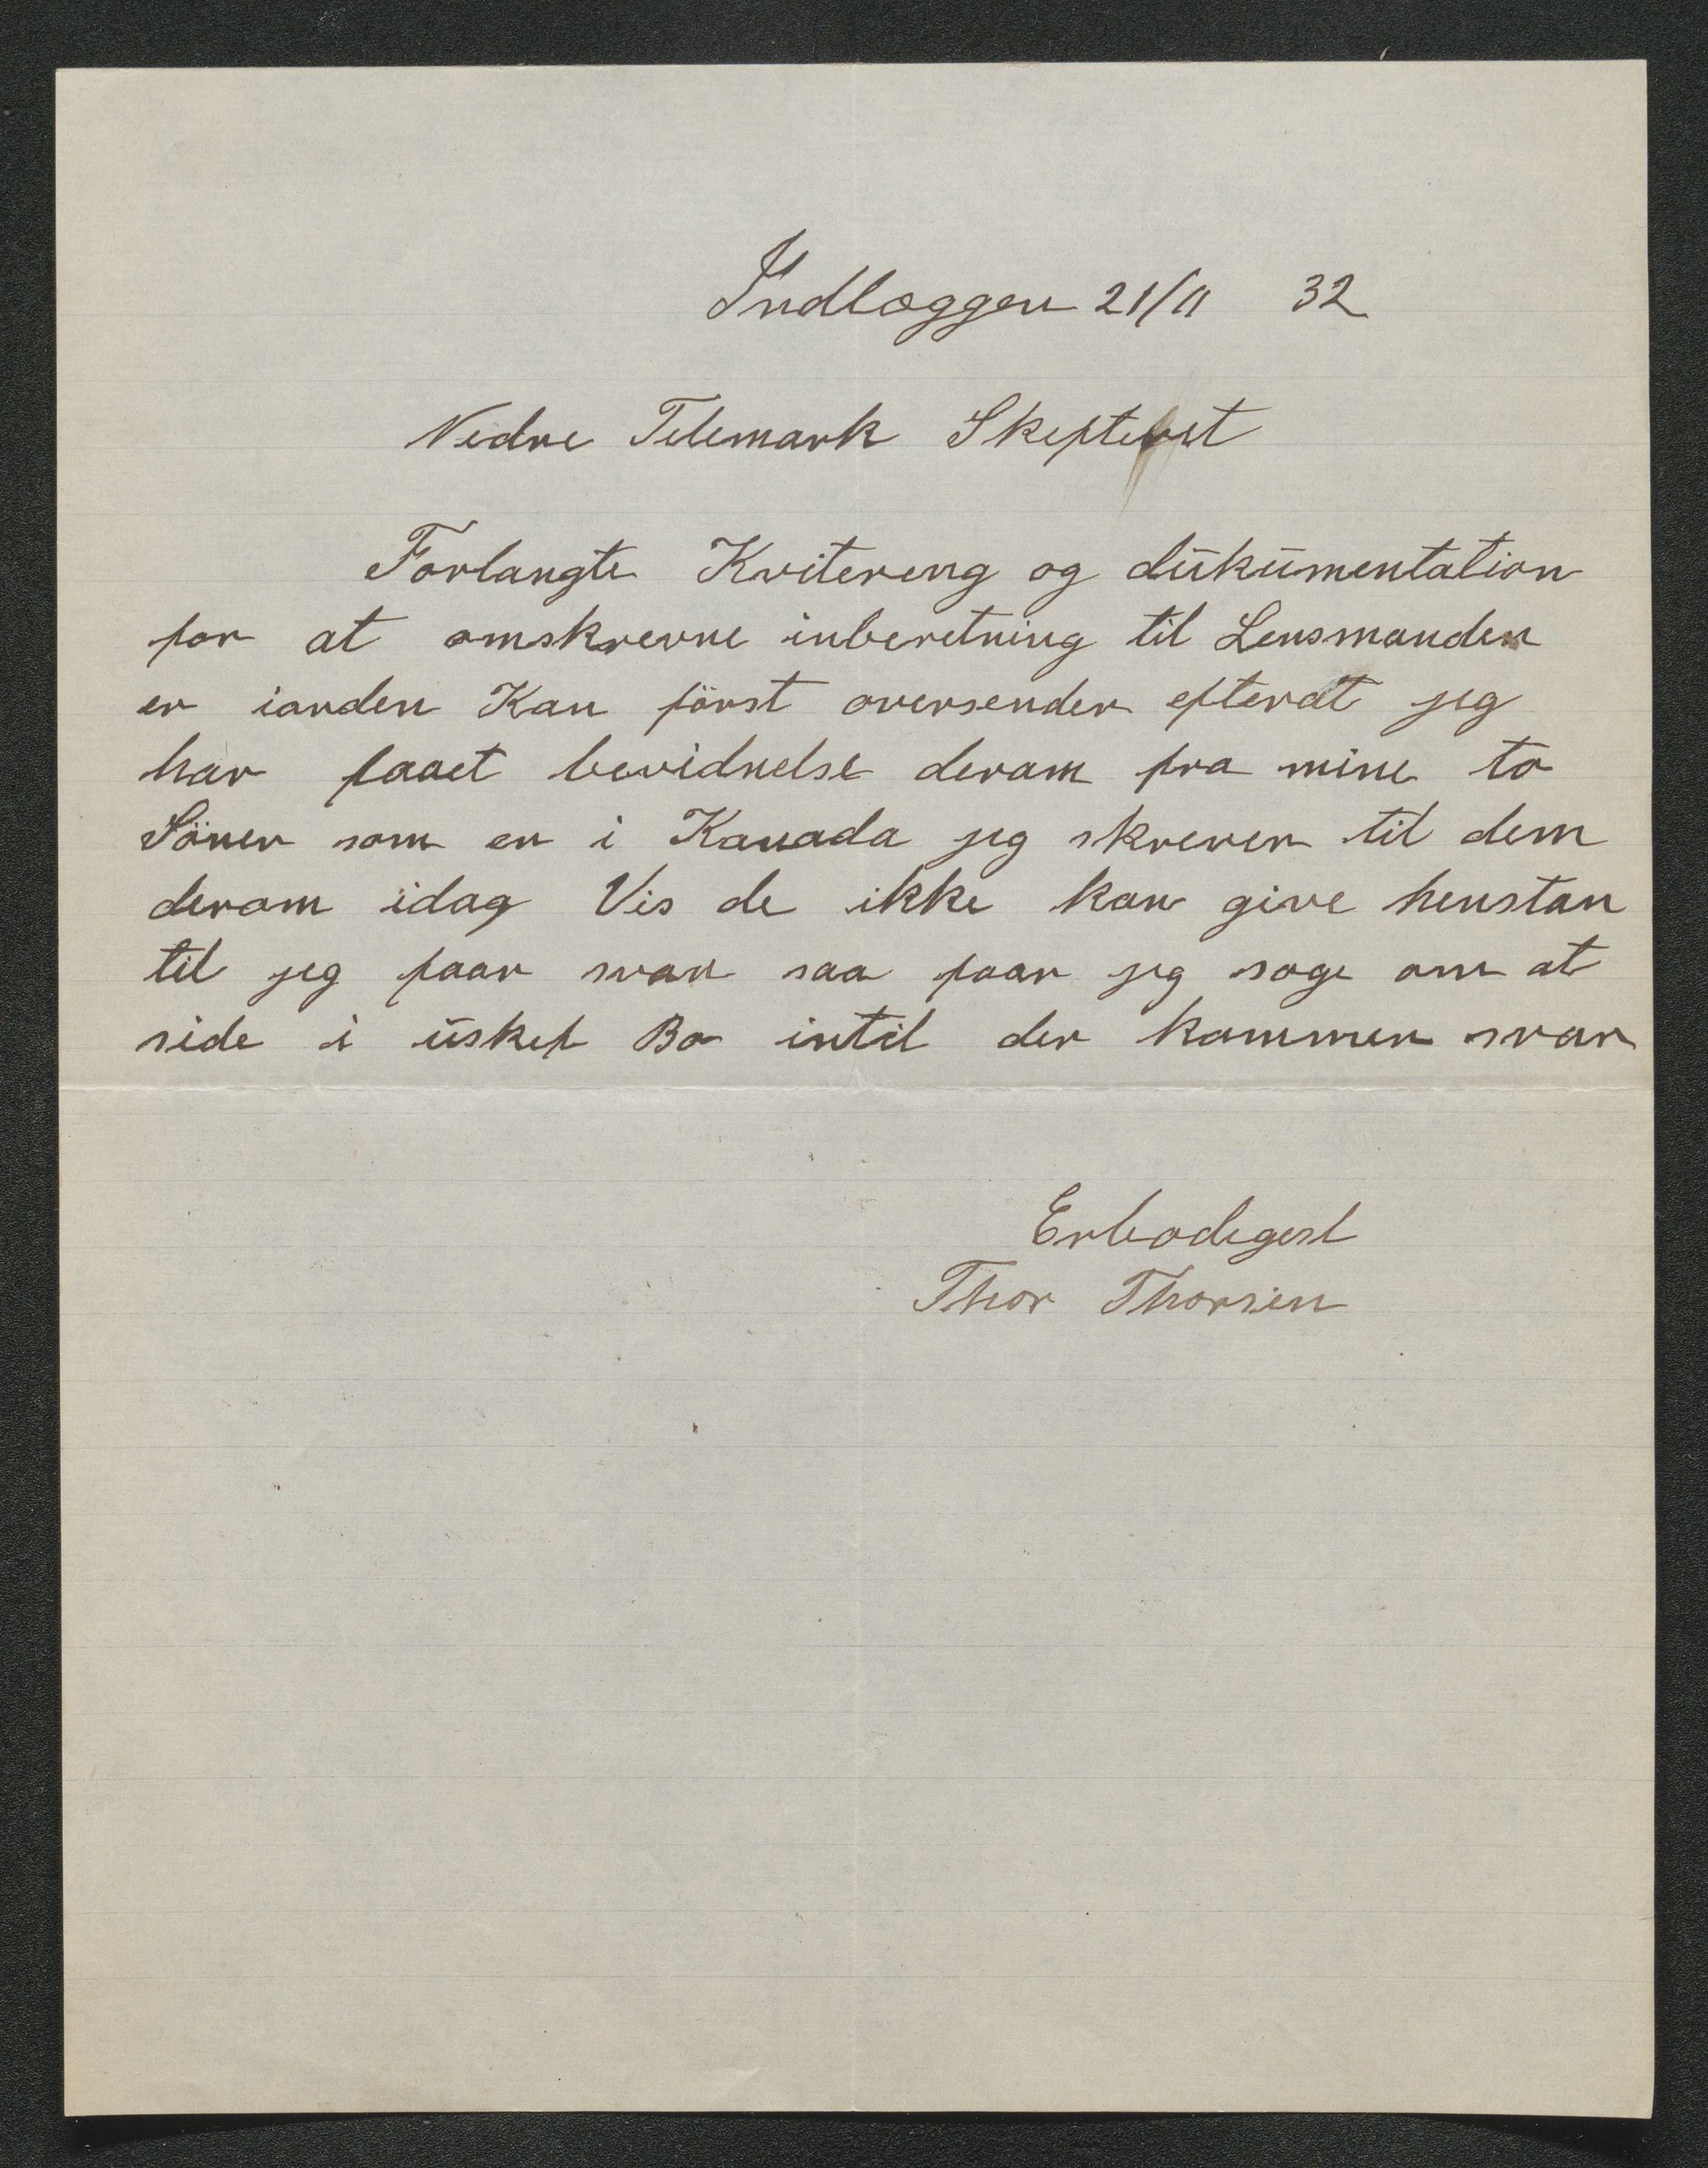 Indloggen 21/11 32
Nedre Telemark Skifteret
Forlangte Kvitereng og dŭkŭmentation
for at omskrevne inberetning til Lensmanden
er iorden Kan först oversender efterat jeg
har faaet bevidnelse derom fra mine to
Söner som er i Kanada jeg skrever til dem
derom idag Vis de ikke kan give henstan
til jeg faar svar saa faar jeg soge om at
side i ŭskif Bo intil der kommer svar
Erbodigest
Thor Thorsen